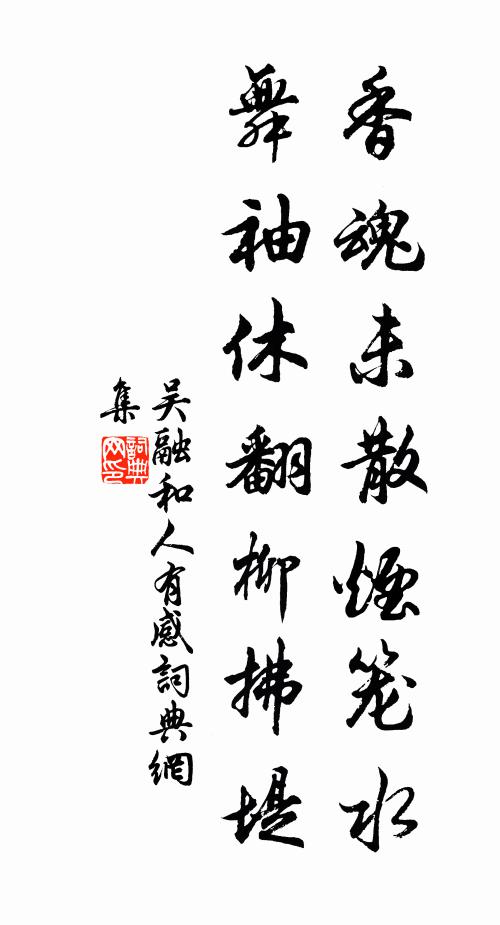 香魂未散煙笼水
舞袖休翻柳拂堤
吴融和人有感詞典網
集
詞典
网印